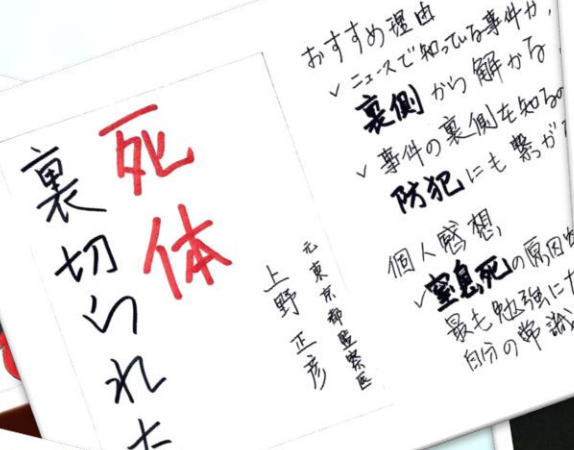 裏切られた
死体
元東京都監察医
上野正彦
おすすめ理由
✓ニュースで知っている事件が、
裏側から解かる
✓事件の裏側を知るの
防犯にも繋が
個人感想
✓窒息死の原因
最も勉強に
自分の常識